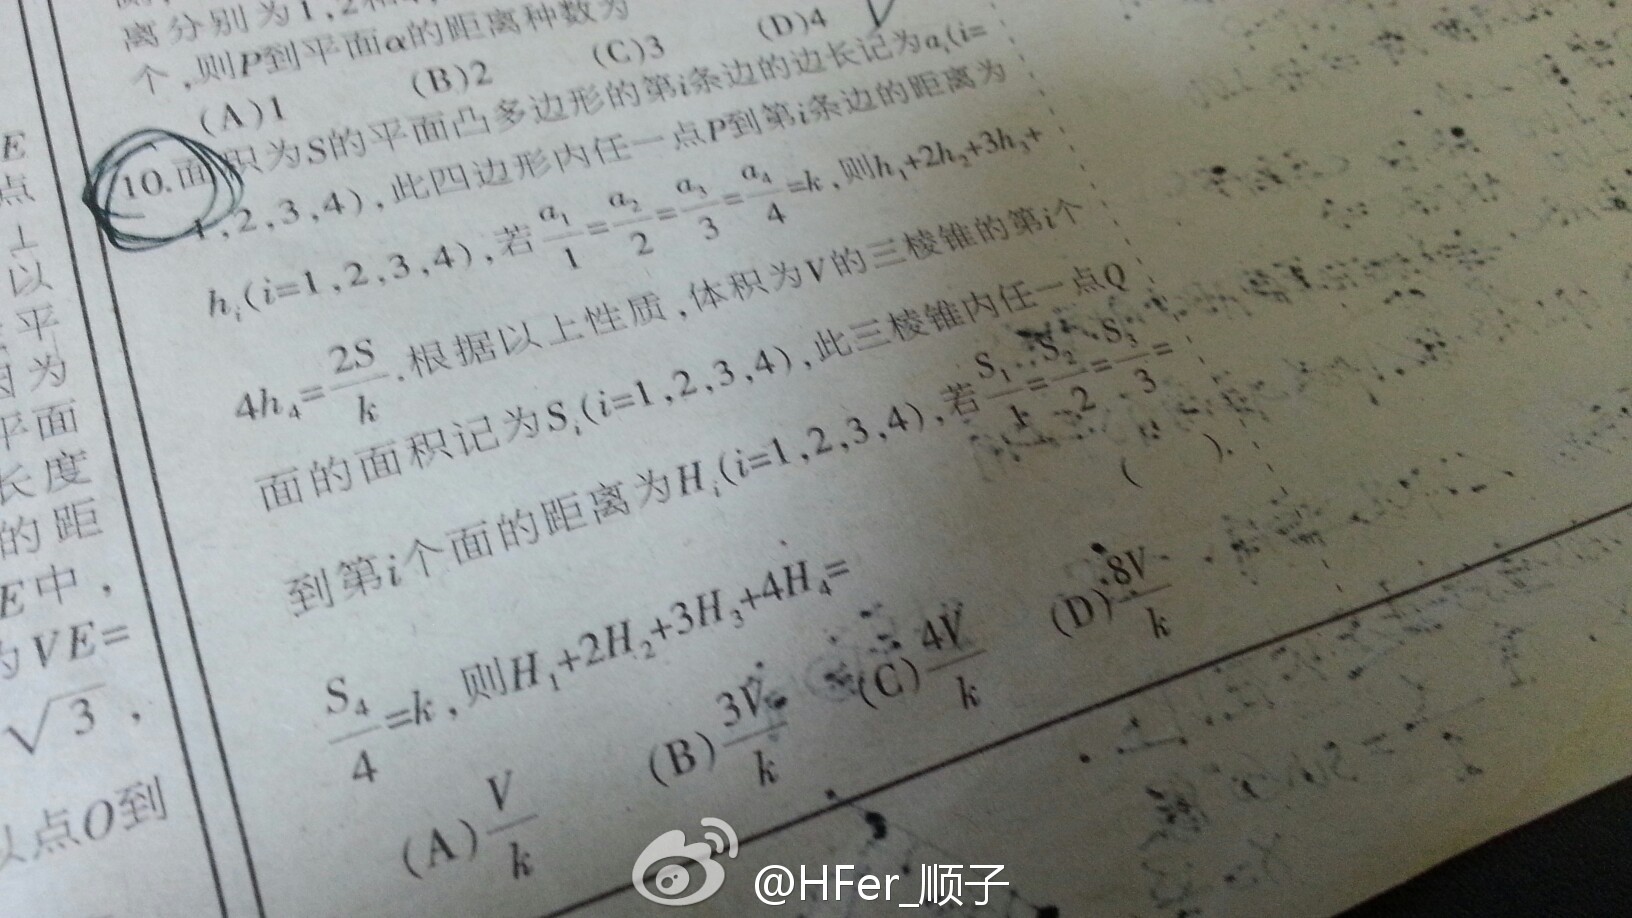 离分别为1,2
个,则P到平面α的距离种数为
(A)1 (B)2 (C)3 (D)4
10.面积为S的平面凸多边形的第i条边的边长记为a_i(i=
1,2,3,4),此四边形内任一点P到第i条边的距离为
h_i(i=1,2,3,4),若a_1/1=a_2/2=a_3/3=a_4/4=k,则h_1+2h_2+3h_3+
4h_4=2S/k.根据以上性质,体积为V的三棱锥的第i个
面的面积记为S_i(i=1,2,3,4),此三棱锥内任一点Q
到第i个面的距离为H_i(i=1,2,3,4),若S_1/1=S_2/2=S_3/3=
S_4/4=k,则H_1+2H_2+3H_3+4H_4= ( ).
(A)V/k (B)3V/k (C)4V/k (D)8V/k
E
点
⊥
以
平
因为
平面
长度
的距
E中,
为VE=
√3,
以点O到
@HFer_顺子